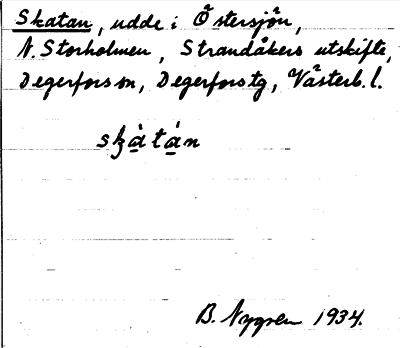 Skatan, udde i Östersjön,
N. Storholmen, Strandåkers utskifte,
Degerfors sn, Degerfors tg, Västerb. l.
skàtán
B. Nygren 1934.